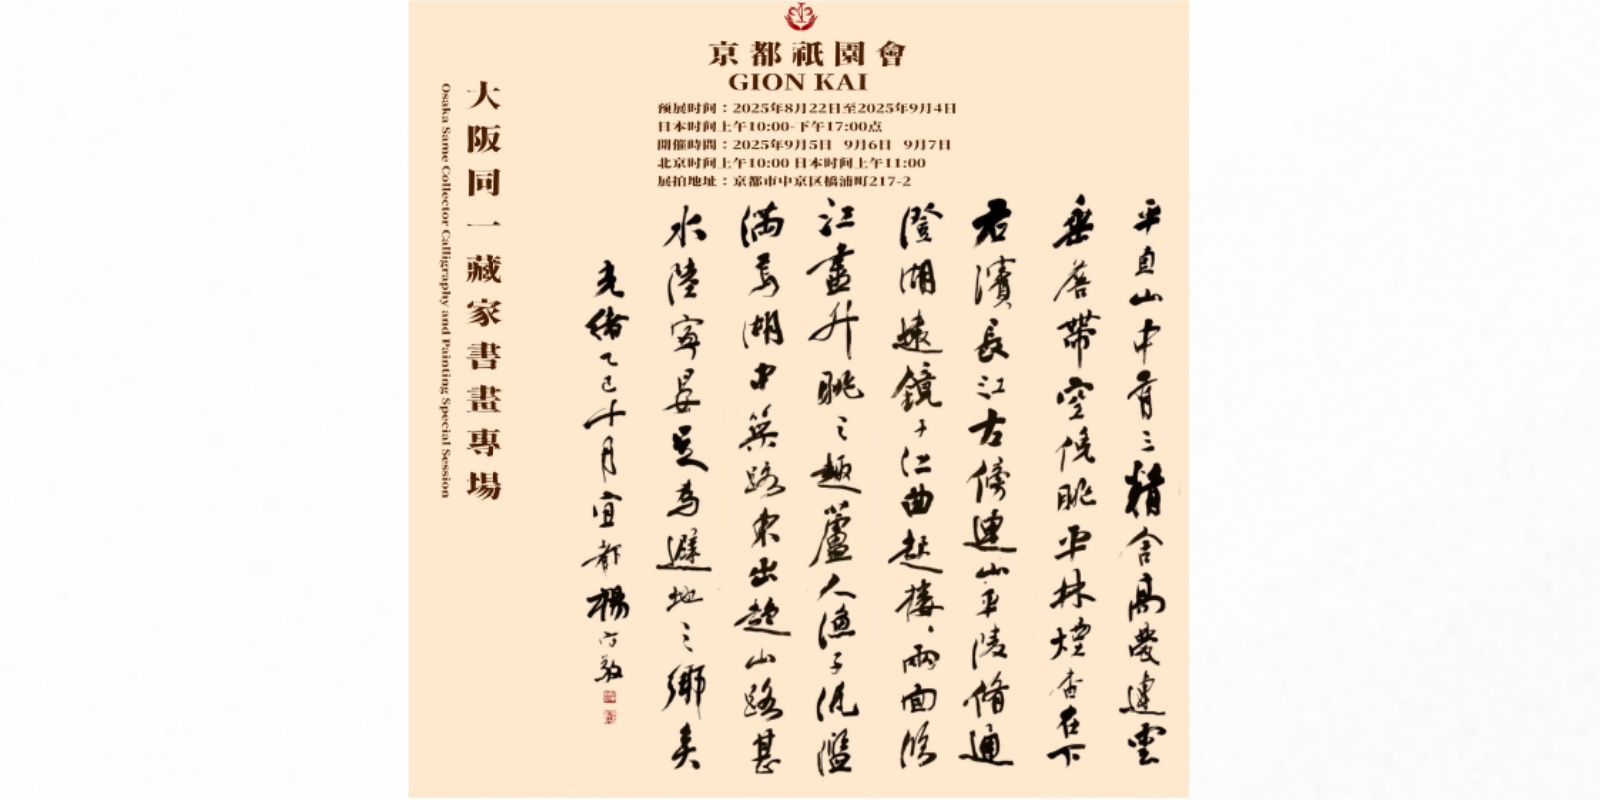 京都祇園會
GION KAI
预展时间：2025年8月22日至2025年9月4日
日本时间上午10:00-下午17:00点
開催時間：2025年9月5日 9月6日 9月7日
北京时间上午10:00 日本时间上午11:00
展拍地址：京都市中京区橋浦町217-2
平直山中有三精舍高甍連雲
垂簷帶空俛眺平林煙杳在下
右濱長江左傍連山平陵脩通
澄湖遠鏡于江曲起樓兩面臨
江盡升眺之趣蘆人漁子汎濫
滿焉湖中築路東出趨山路甚
水陸寧晏足為避地之鄉矣
光緒乙巳十月宜都楊守敬
大阪同一藏家書畫專場
Osaka Same Collector Calligraphy and Painting Special Session